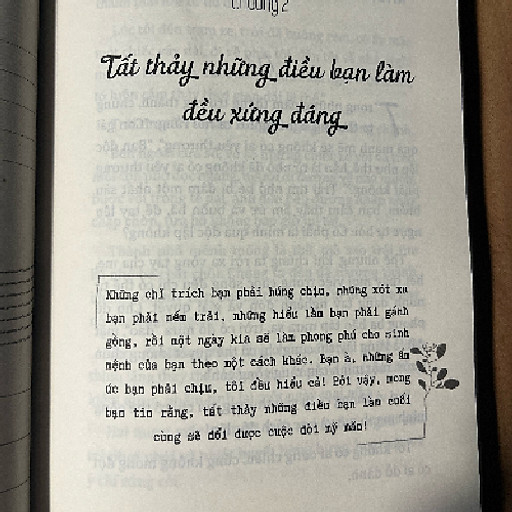 Chương 2
Tất thảy những điều bạn làm
đều xứng đáng
Những chỉ trích bạn phải hứng chịu, những xót xa
bạn phải nếm trải, những hiểu lầm bạn phải gánh
gồng, rồi một ngày kia sẽ làm phong phú cho sinh
mệnh của bạn theo một cách khác. Bạn à, những ấm
ức bạn phải chịu, tôi đều hiểu cả! Bởi vậy, mong
bạn tin rằng, tất thảy những điều bạn làm cuối
cùng sẽ đổi được cuộc đời mỹ mãn!